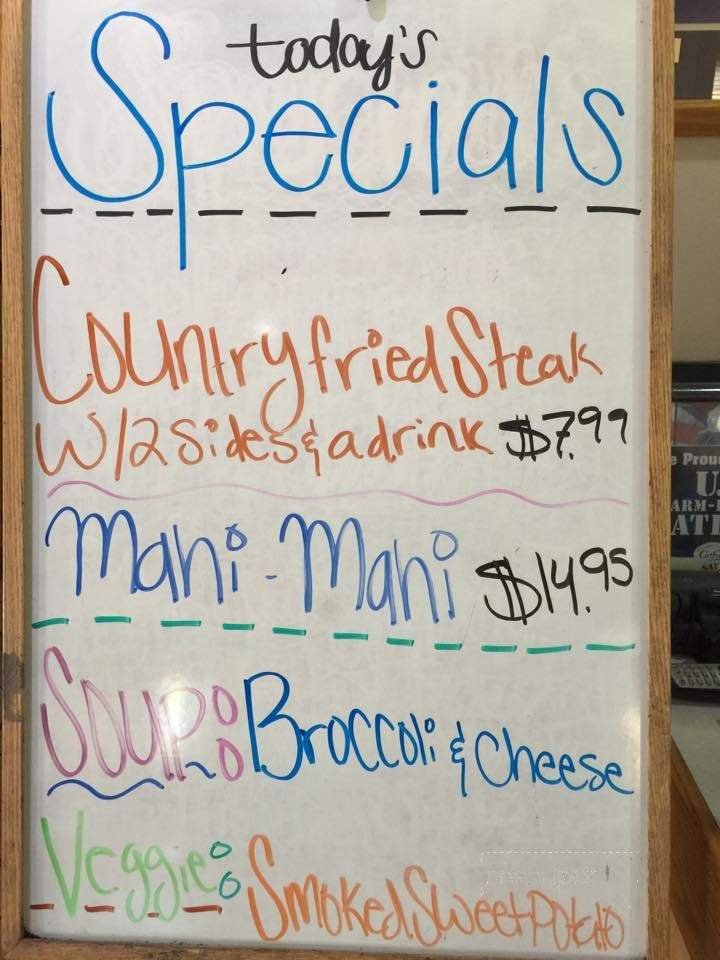 today's
Specials
Country fried Steak
W/2 Sides & a drink $7.99
Mahi-Mahi $14.95
Soup: Broccoli & Cheese
Veggie: Smoked Sweet Potato